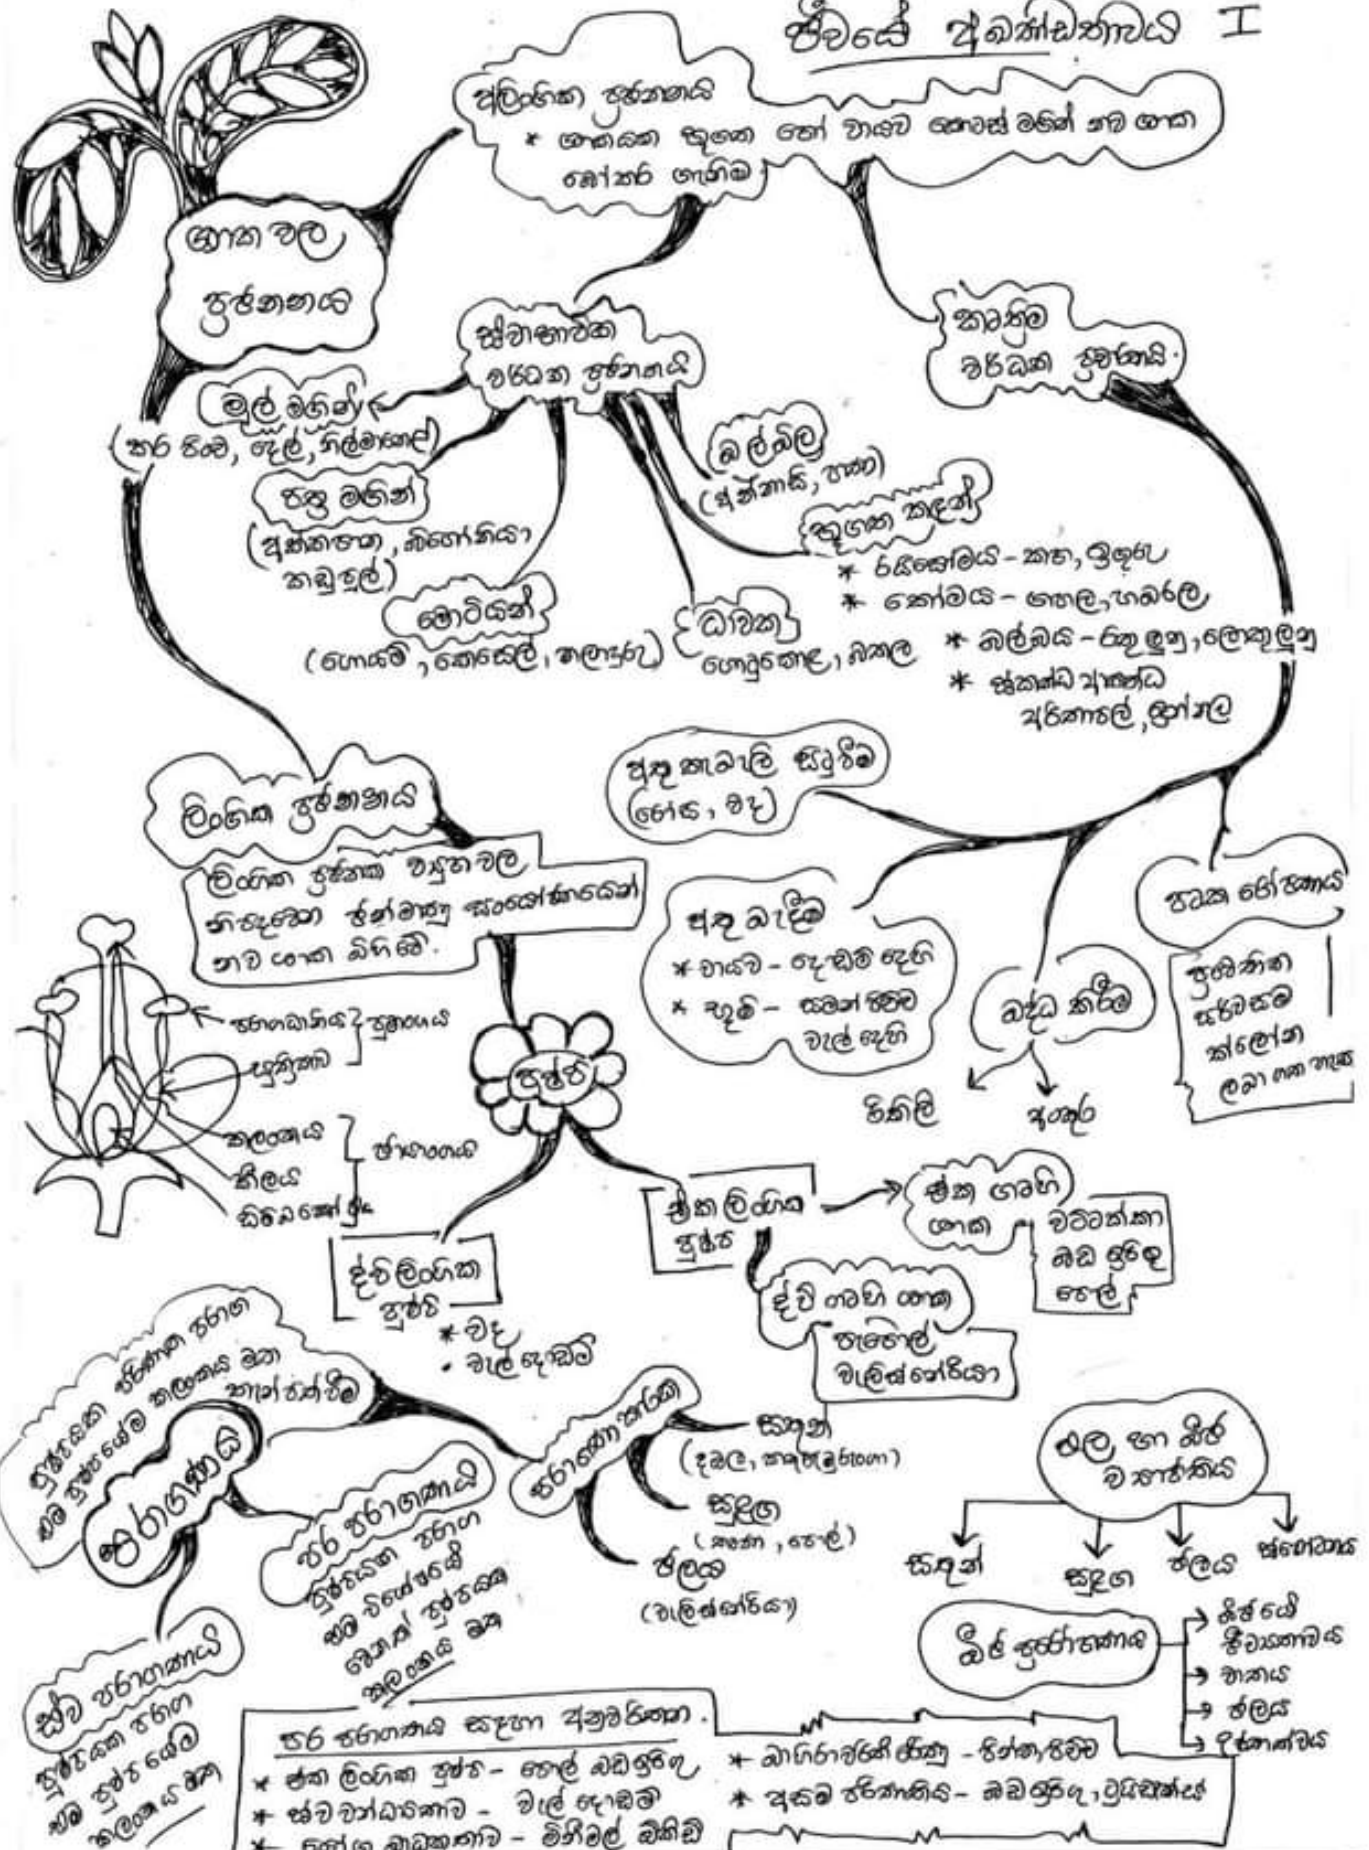 ජීවයේ අඛණ්ඩතාවය I
අලිංගික ප්‍රජනනය
* ශාකයක භූගත හෝ වායව කොටස් මගින් නව ශාක
බෝකර ගැනීම
ශාක වල
ප්‍රජනනය
ස්වාභාවික
වර්ධක ප්‍රජනනය
කෘත්‍රිම
වර්ධක ප්‍රචාරණය.
මුල් මගින්
(කරපිංචා, දෙල්, නිල්මානෙල්)
පත්‍ර මගින්
(අක්කපාන, බිගෝනියා
කඩුපුල්)
මොටියන්
(ගොයම්, කෙසෙල්, කලාදුරු)
ධාවක
ගොටුකොළ, බතල
බල්බිල
(අන්නාසි, හණ)
භූගත කඳන්
* රයිසෝමය - කහ, ඉඟුරු
* කෝමය - ගහල, හබරල
* බල්බය - රතු ලූනු, ලොකු ලූනු
* ස්කන්ධ ආකන්ධ
අර්තාපල්, ඉන්නල
ලිංගික ප්‍රජනනය
ලිංගික ප්‍රජනක ව්‍යුහ වල
නිපදවෙන ජන්මාණු සංයෝජනයෙන්
නව ශාක බිහි වේ.
අතු කැබැලි සිටුවීම
(රෝස, වද)
අතු බැඳීම
* වායව - දොඩම් දෙහි
* භූමි - සමන් පිච්ච
වැල් දෙහි
බද්ධ කිරීම
රිකිලි
අංකුර
පටක රෝපණය
ප්‍රවේණික
සර්වසම
ක්ලෝන
ලබා ගත හැක
පරාගධානිය
සූත්‍රිකාව
පුමාංගය
කලංකය
කීලය
ඩිම්බකෝෂය
ජායාංගය
පුෂ්ප
ද්වි ලිංගික
පුෂ්ප
* වද
• වැල් දොඩම්
ඒක ලිංගික
පුෂ්ප
ඒක ගෘහි
ශාක
වට්ටක්කා
බඩ ඉරිඟු
පොල්
ද්වි ගෘහි ශාක
පැපොල්
වැලිස්නේරියා
පුෂ්පයක පරිණත පරාග
එම පුෂ්පයේම කලංකය මත
තැන්පත්වීම
පරාගණය
පර පරාගණය
පුෂ්පයක පරාග
එම විශේෂයේ
වෙනත් පුෂ්පයක
කලංකය මත
ස්ව පරාගණය
පුෂ්පයක පරාග
එම පුෂ්පයේම
කලංකය මත
පරාගණ කාරක
සතුන්
(දඹල, කතුරුමුරුංගා)
සුළඟ
(තෘණ, පොල්)
ජලය
(වැලිස්නේරියා)
ඵල හා බීජ
ව්‍යාප්තිය
සතුන්
සුළඟ
ජලය
ස්ඵෝටනය
බීජ ප්‍රරෝහණය
බීජයේ
ජීව්‍යතාවය
වාතය
ජලය
පර පරාගණය සඳහා අනුවර්තන.
* ඒක ලිංගික පුෂ්ප - පොල් බඩඉරිඟු
* ස්ව වන්ධ්‍යතාව - වැල් දොඩම්
* බාධකතාව - මිනිමල් බිකිඩි
* බාහිරාවර්තී රේණු - පින්නා පිච්ච
* අසම පරිණතිය - බඩ ඉරිඟු, ට්‍රයිඩැක්ස්